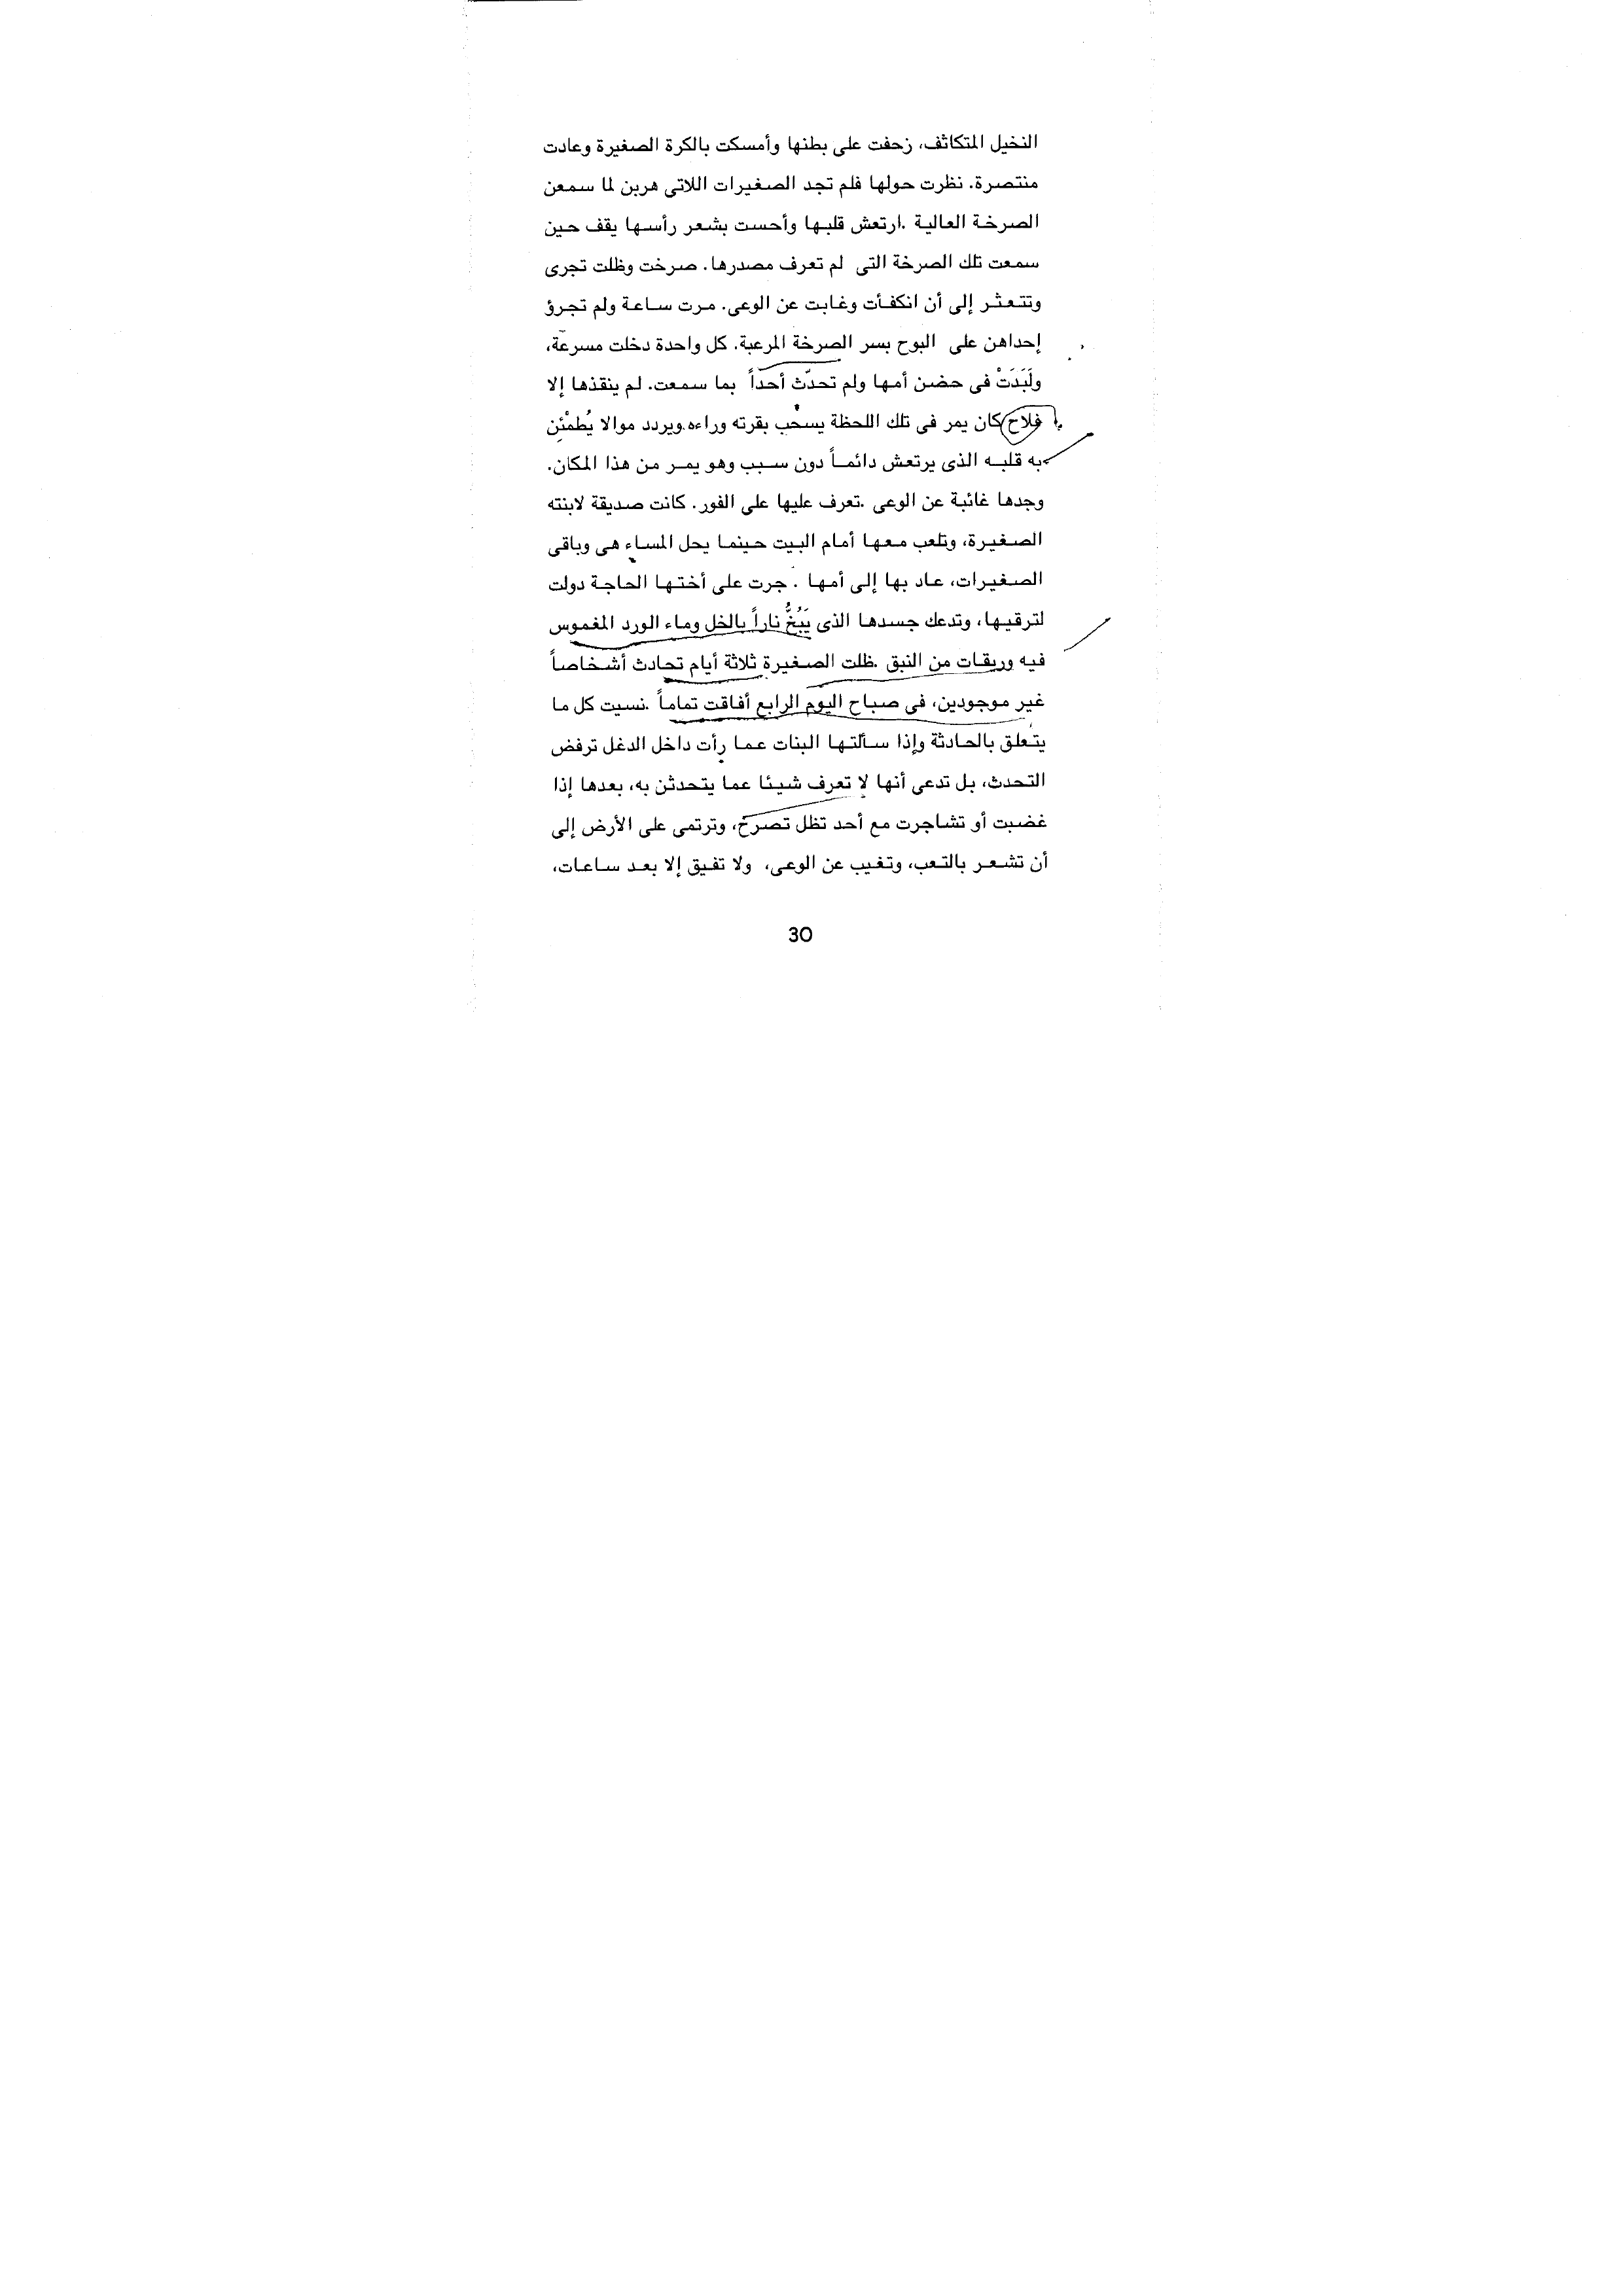 النخيل المتكاثف، زحفت على بطنها وأمسكت بالكرة الصغيرة وعادت
منتصرة. نظرت حولها فلم تجد الصغيرات اللاتى هربن لما سمعن
الصرخة العالية .ارتعش قلبها وأحست بشعر رأسها يقف حين
سمعت تلك الصرخة التى لم تعرف مصدرها. صرخت وظلت تجرى
وتتعثر إلى أن انكفأت وغابت عن الوعى. مرت ساعة ولم تجرؤ
إحداهن على البوح بسر الصرخة المرعبة. كل واحدة دخلت مسرعة،
ولَبَدَتْ فى حضن أمها ولم تحدّث أحداً بما سمعت. لم ينقذها إلا
فلاح كان يمر فى تلك اللحظة يسحب بقرته وراءه ويردد موالا يُطمْئِن
به قلبه الذى يرتعش دائماً دون سبب وهو يمر من هذا المكان.
وجدها غائبة عن الوعى .تعرف عليها على الفور. كانت صديقة لابنته
الصغيرة، وتلعب معها أمام البيت حينما يحل المساء هى وباقى
الصغيرات، عاد بها إلى أمها . جرت على أختها الحاجة دولت
لترقيها، وتدعك جسدها الذى يَبُخُّ ناراً بالخل وماء الورد المغموس
فيه وريقات من النبق .ظلت الصغيرة ثلاثة أيام تحادث أشخاصاً
غير موجودين، فى صباح اليوم الرابع أفاقت تماماً .نسيت كل ما
يتعلق بالحادثة وإذا سألتها البنات عما رأت داخل الدغل ترفض
التحدث، بل تدعى أنها لا تعرف شيئا عما يتحدثن به، بعدها إذا
غضبت أو تشاجرت مع أحد تظل تصرخ، وترتمى على الأرض إلى
أن تشعر بالتعب، وتغيب عن الوعى، ولا تفيق إلا بعد ساعات،
30